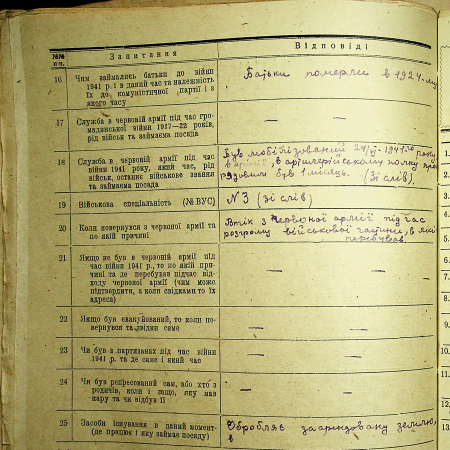 №№ п-п.
Запитання
Відповіді
16
Чим займались батьки до війни
1941 р. і в даний час та належність
їх до комуністичної партії і з
якого часу
Батьки померли в 1924
17
Служба в червоній армії під час гро-
мадянської війни 1917—22 років,
рід військ та займаема посада
— —
18
Служба в червоній армії під час
війни 1941 року, який час, рід
військ, останнє військове звання
та займаема посада
Був мобілізований 24/VI-1941 року
в артилерійському полку
рядовим був 1 місяць. (Зі слів).
19
Військова спеціальність (№ ВУС)
№ 3 (зі слів)
20
Коли повернувся з червоної армії та
по якій причині
Втік з червоної армії під час
розгрому військової частини, в якій
перебував.
21
Якщо не був в червоній армії під
час війни 1941 р., то по якій при-
чині та де перебував підчас від-
ходу червоної армії (чим може
підтвердити, а коли свідками то їх
адреса)
— —
22
Якщо був евакуйований, то коли по-
вернувся та звідки саме
— —
23
Чи був в партизанах під час війни
1941 р. та де саме і який час
— —
24
Чи був репресований сам, або хто з
родичів, коли і защо, яку мав
кару та чи відбув її
— —
25
Засоби існування в даний момент-
(де працює і яку займає посаду)
Обробляв заарендовану землю,
в